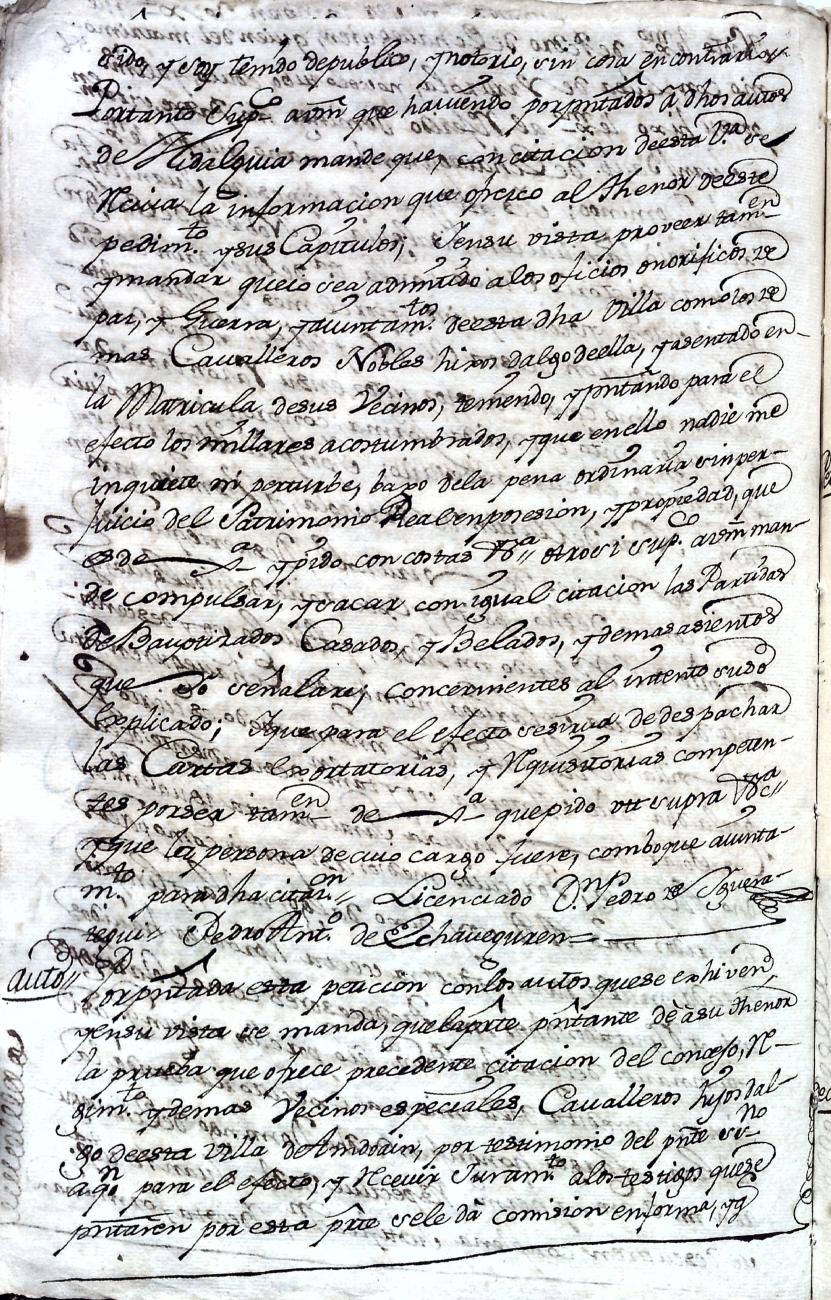 sido, y soy tenido de publico, y notorio, sin cosa en contrario;
Portanto Supco. a vm que haviendo por pntados a dhos autos
de Hidalguia mande que, con citacion de esta Va. se
Reciva la informacion que ofrezco al thenor de este
pedimto. y sus Capitulos; Y en su vista proveer tamen
y mandar que io sea admitido a los oficios onorificos de
paz, y Guerra, y aiuntamtos. de esta dha Villa como los de
mas Cavalleros Nobles hixos dalgo de ella, y asentado en
la Matricula de sus Vecinos, teniendo, y pntando para el
efecto los millares acostumbrados, y que en ello nadie me
inquiete ni perturbe, baxo de la pena ordinaria sin per-
Juicio del Patrimonio Real en posesion, y propiedad, que
es de Xa y pido con costas Vca. otro si supco. a vm man-
de compulsar, y sacar con igual citacion las Partidas
de Bauptizados Casados, y Belados, y demas asientos
que Yo señalare, concernientes al intento suso
explicado; Y que para el efecto se sirva de despachar
las Cartas Exortatorias, y Requisitorias competen-
tes por ser tamen de Xa que pido vtt supra Vca.
y que la persona de cuio cargo fuere, comboque aiunta-
mto. para dha citaon. Licenciado Dn. Pedro de Eguzra-
tegui Pedro Anto. de Echaveguren
auto Por pntada esta peticion con los autos que se exhiven,
y en su vista se manda, que la prte pntante dè à su thenor
la prueba que ofrece precedente citacion del concejo, Re-
gimto. y demas Vecinos especiales, Cavalleros hijos dal-
go de esta Villa de Andoain, por testimonio del pnte ssno
a qn. para el efecto, y Recevir Juramto a los testigos que se
pntaren por esta prte se le dà comision en forma, y q